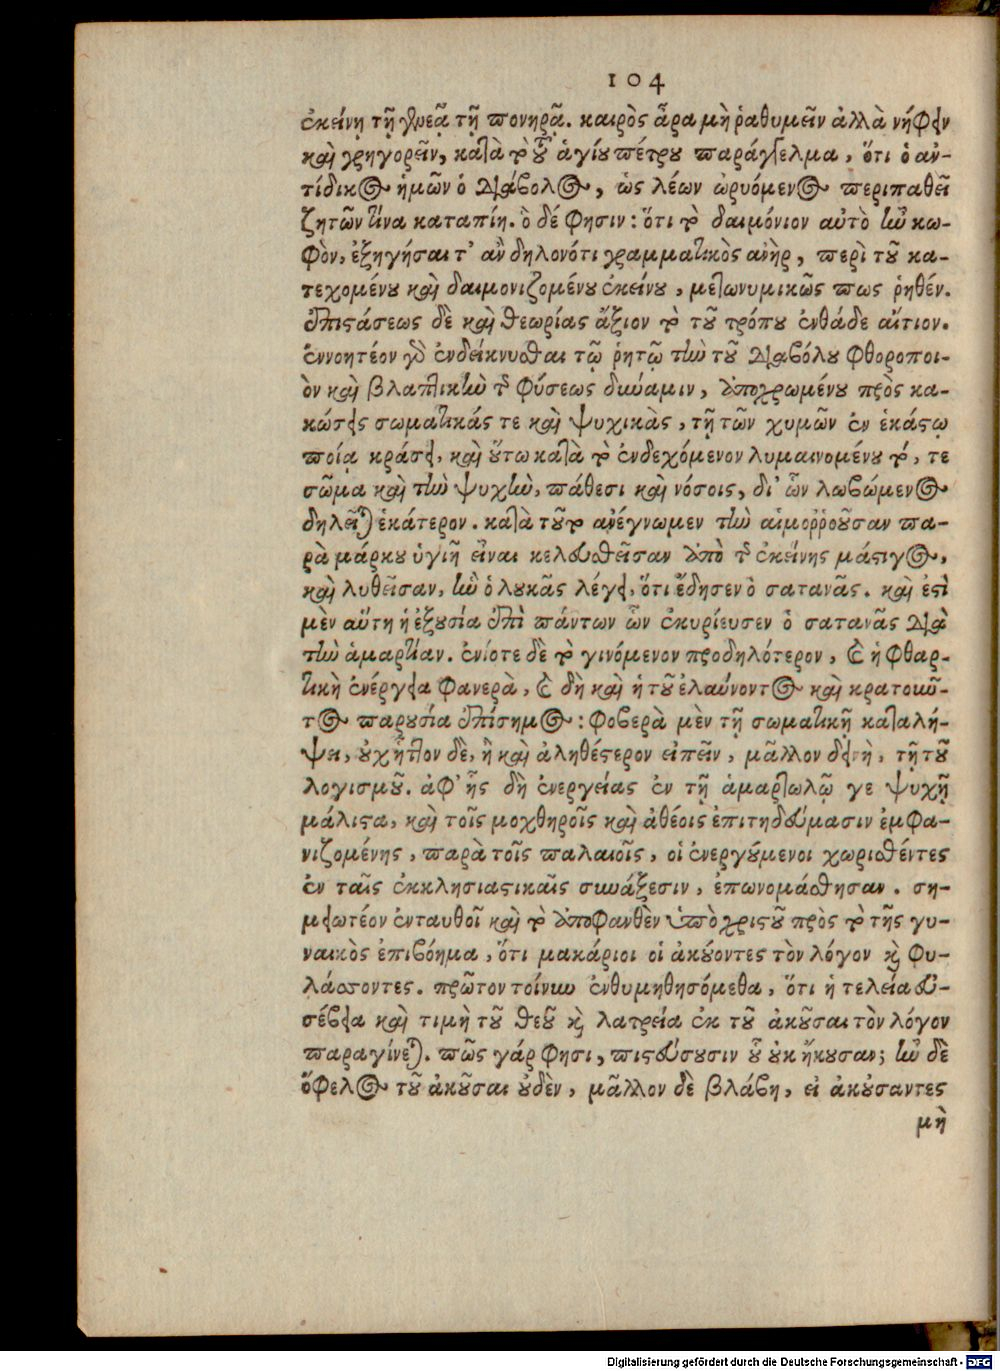 104
ἐκείνῃ τῇ γενεᾷ τῇ πονηρᾷ. καιρὸς ἆρα μὴ ῥαθυμεῖν ἀλλὰ νήφειν
καὶ γρηγορεῖν, κατὰ τὸ τοῦ ἁγίου πέτρου παράγγελμα, ὅτι ὁ ἀν-
τίδικος ἡμῶν ὁ διάβολος, ὡς λέων ὠρυόμενος περιπαθεῖ
ζητῶν τίνα καταπίῃ. ὃ δέ φησιν: ὅτι τὸ δαιμόνιον αὐτὸ ἦν κω-
φὸν, ἐξηγήσαιτ' ἂν δηλονότι γραμματικὸς ἀνὴρ, περὶ τοῦ κα-
τεχομένου καὶ δαιμονιζομένου ἐκείνου, μετωνυμικῶς πως ῥηθέν.
ἐπιστάσεως δὲ καὶ θεωρίας ἄξιον τὸ τοῦ τρόπου ἐνθάδε αἴτιον.
ἐννοητέον γὰρ ἐνδείκνυσθαι τῷ ῥητῷ τὴν τοῦ διαβόλου φθοροποι-
ὸν καὶ βλαπτικὴν τῆς φύσεως δύναμιν, ἀποχρωμένου πρὸς κα-
κώσεις σωματικάς τε καὶ ψυχικὰς, τῇ τῶν χυμῶν ἐν ἑκάστῳ
ποίᾳ κράσει, καὶ οὕτω κατὰ τὸ ἐνδεχόμενον λυμαινομένου τό, τε
σῶμα καὶ τὴν ψυχὴν, πάθεσι καὶ νόσοις, δι' ὧν λωβώμενος
δηλεῖται ἑκάτερον. κατὰ τοῦτο ἀνέγνωμεν τὴν αἱμοῤῥοῦσαν πα-
ρὰ μάρκου ὑγιῆ εἶναι κελευθεῖσαν ἀπὸ τῆς ἐκείνης μάστιγος,
καὶ λυθεῖσαν, ἣν ὁ λουκᾶς λέγει, ὅτι ἔδησεν ὁ σατανᾶς. καὶ ἐστὶ
μὲν αὕτη ἡ ἐξουσία ἐπὶ πάντων ὧν ἐκυρίευσεν ὁ σατανᾶς διὰ
τὴν ἁμαρτίαν. ἐνίοτε δὲ τὸ γινόμενον προδηλότερον, καὶ ἡ φθαρ-
τικὴ ἐνέργεια φανερὰ, καὶ δὴ καὶ ἡ τοῦ ἐλαύνοντος καὶ κρατοιοῦ-
τος παρουσία ἐπίσημος: φοβερὰ μὲν τῇ σωματικῇ καταλή-
ψει, οὐχ ἧττον δὲ, ἢ καὶ ἀληθέστερον εἰπεῖν, μᾶλλον δεινὴ, τῇ τοῦ
λογισμοῦ. ἀφ' ἧς δὴ ἐνεργείας ἐν τῇ ἁμαρτωλῷ γε ψυχῇ
μάλιστα, καὶ τοῖς μοχθηροῖς καὶ ἀθέοις ἐπιτηδεύμασιν ἐμφα-
νιζομένης, παρὰ τοῖς παλαιοῖς, οἱ ἐνεργούμενοι χωρισθέντες
ἐν ταῖς ἐκκλησιαστικαῖς συνάξεσιν, ἐπωνομάσθησαν. ση-
μειωτέον ἐνταυθοῖ καὶ τὸ ἀποφανθὲν ὑπὸ χριστοῦ πρὸς τὸ τῆς γυ-
ναικὸς ἐπιβόημα, ὅτι μακάριοι οἱ ἀκούοντες τὸν λόγον καὶ φυ-
λάσσοντες. πρῶτον τοίνυν ἐνθυμηθησόμεθα, ὅτι ἡ τελεία εὐ-
σέβεια καὶ τιμὴ τοῦ θεοῦ καὶ λατρεία ἐκ τοῦ ἀκοῦσαι τὸν λόγον
παραγίνεται. πῶς γάρ φησι, πιστεύσουσιν οὗ οὐκ ἤκουσαν; ἦν δὲ
ὄφελος τοῦ ἀκοῦσαι οὐδὲν, μᾶλλον δὲ βλάβη, εἰ ἀκούσαντες
μὴ
Digitalisierung gefördert durch die Deutsche Forschungsgemeinschaft - DFG